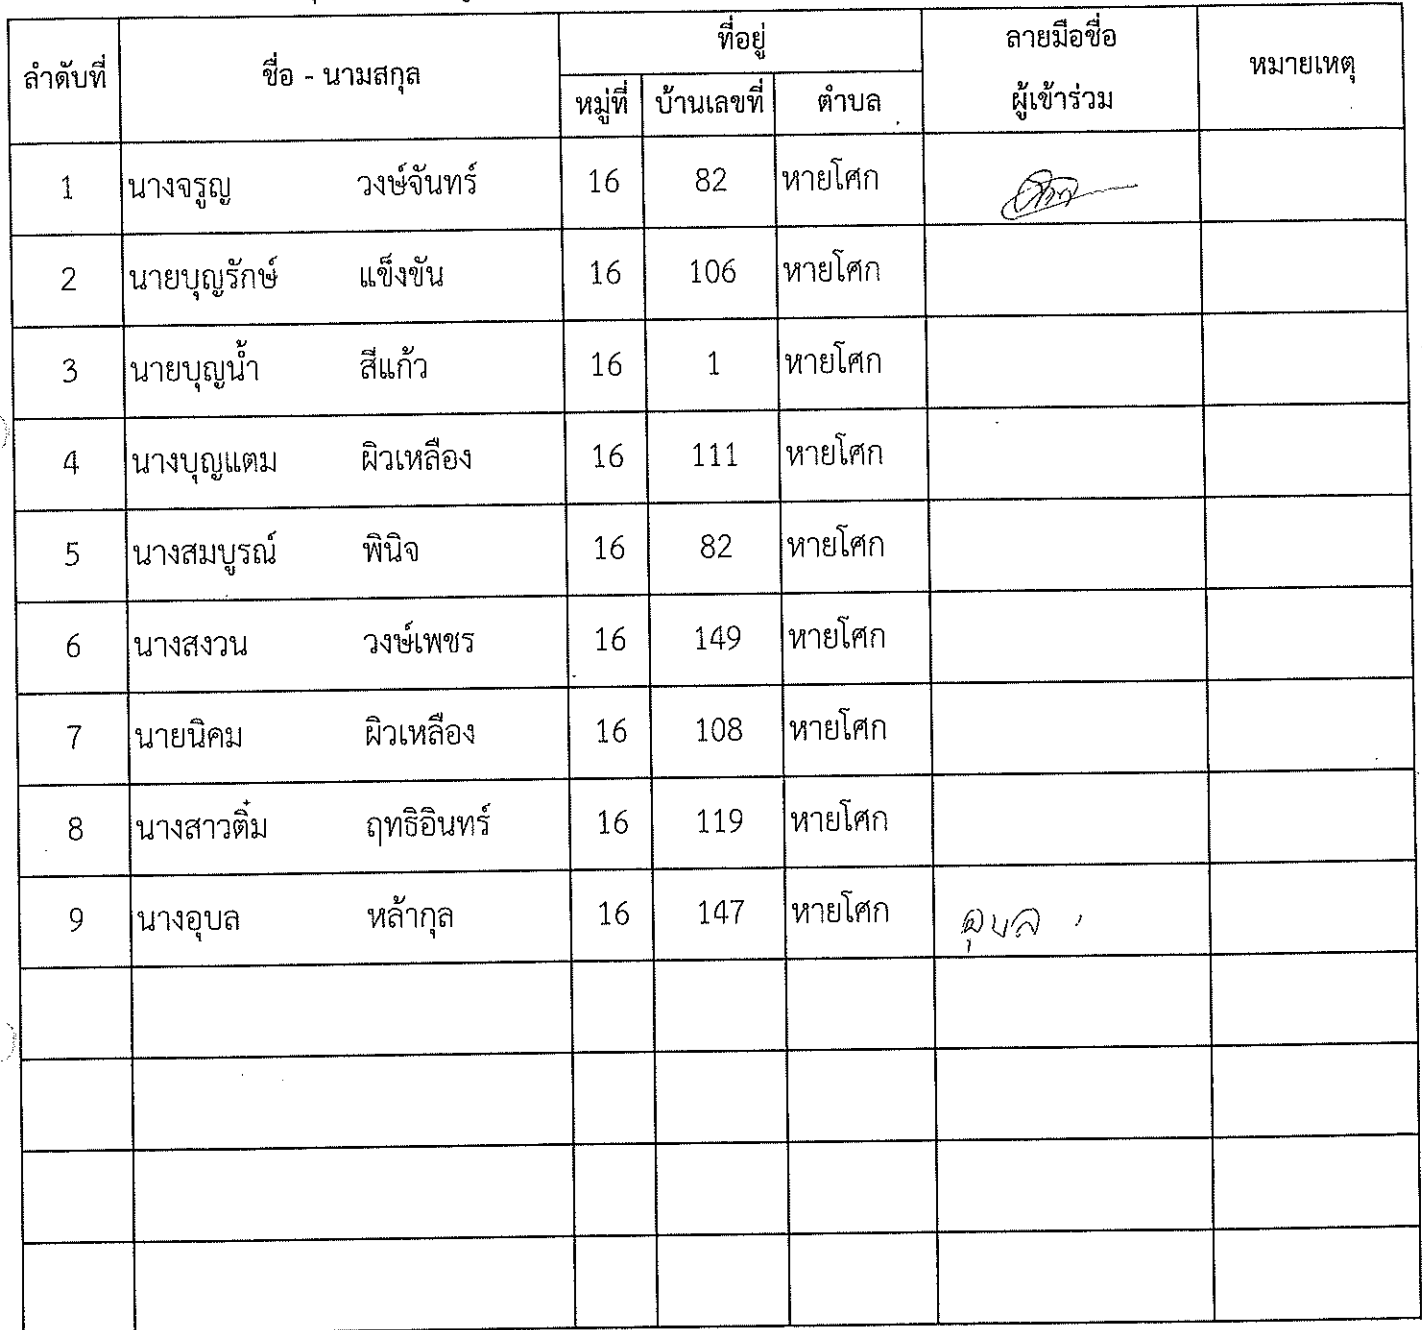 ลำดับที่ ชื่อ - นามสกุล ที่อยู่ ลายมือชื่อ หมายเหตุ
หมู่ที่ บ้านเลขที่ ตำบล ผู้เข้าร่วม
1 นางจรูญ วงษ์จันทร์ 16 82 หายโศก
2 นายบุญรักษ์ แข็งขัน 16 106 หายโศก
3 นายบุญน้ำ สีแก้ว 16 1 หายโศก
4 นางบุญแตม ผิวเหลือง 16 111 หายโศก
5 นางสมบูรณ์ พินิจ 16 82 หายโศก
6 นางสงวน วงษ์เพชร 16 149 หายโศก
7 นายนิคม ผิวเหลือง 16 108 หายโศก
8 นางสาวติ๋ม ฤทธิอินทร์ 16 119 หายโศก
9 นางอุบล หล้ากุล 16 147 หายโศก อุบล